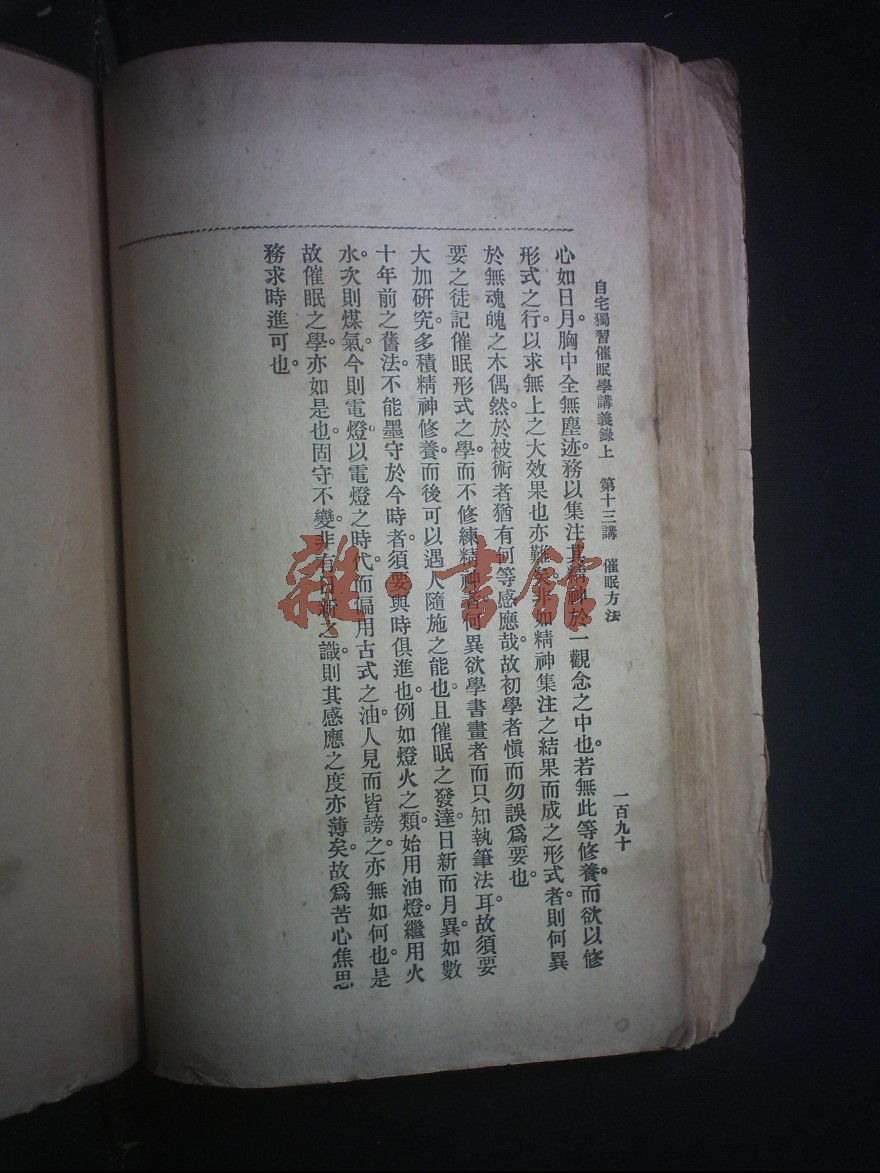 自宅獨習催眠學講義錄上　第十三講　催眠方法　一百九十
心如日月。胸中全無塵迹。務以集注其精神於一觀念之中也。若無此等修養。而欲以修
形式之行。以求無上之大效果也。亦難矣。非如精神集注之結果而成之形式者。則何異
於無魂魄之木偶。然於被術者猶有何等感應哉。故初學者愼而勿誤爲要也。
要之徒記催眠形式之學。而不修練精神者。何異欲學書畫者而只知執筆法耳。故須要
大加硏究。多積精神修養。而後可以遇人隨施之能也。且催眠之發達。日新而月異。如數
十年前之舊法。不能墨守於今時者。須要與時俱進也。例如燈火之類。始用油燈。繼用火
水。次則煤氣。今則電燈。以電燈之時代。而偏用古式之油。人見而皆謗之。亦無如何也。是
故催眠之學。亦如是也。固守不變。非有日新之識。則其感應之度亦薄矣。故爲苦心焦思
務求時進可也。
雜·書館